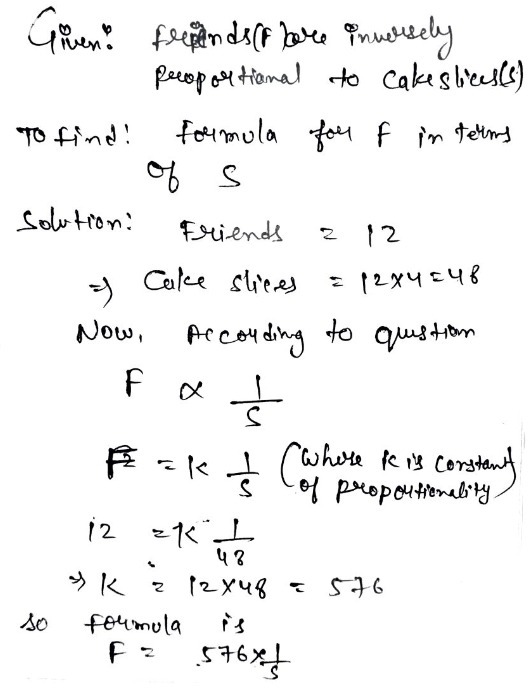 Given: friends(F) are inversely
proportional to cake slices(s)
To find: formula for F in terms
of S
Solution: Friends = 12
⇒ Cake slices = 12×4=48
Now, According to question
F ∝ 1/S
F = K 1/S (where K is constant of proportionality)
12 = K 1/48
⇒ K = 12×48 = 576
so formula is
F = 576×1/S